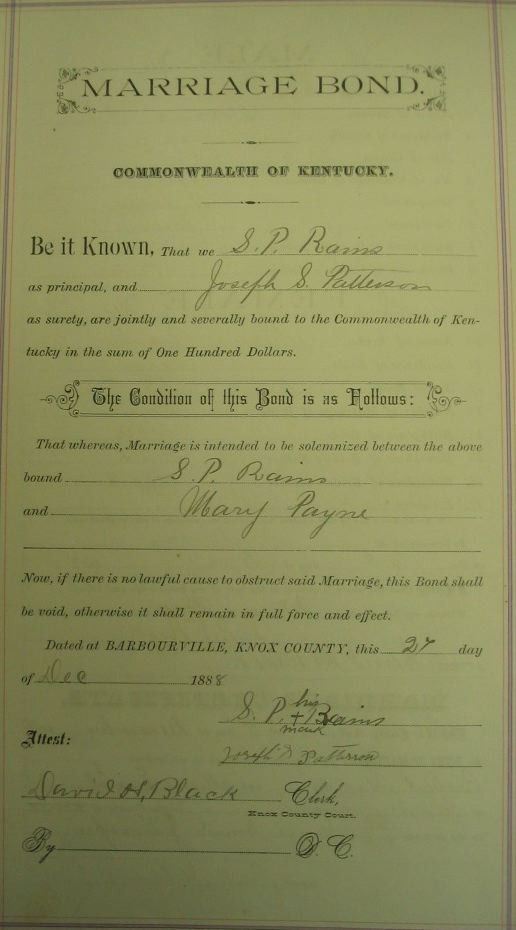 MARRIAGE BOND.
COMMONWEALTH OF KENTUCKY.
Be it Known, That we S. P. Rains
as principal, and Joseph S. Patterson
as surety, are jointly and severally bound to the Commonwealth of Ken-
tucky in the sum of One Hundred Dollars.
The Condition of this Bond is as Follows:
That whereas, Marriage is intended to be solemnized between the above
bound S. P. Rains
and Mary Payne
Now, if there is no lawful cause to obstruct said Marriage, this Bond shall
be void, otherwise it shall remain in full force and effect.
Dated at BARBOURVILLE, KNOX COUNTY, this day
of Dec 1888
his
S. P. + Rains
mark
Attest:
Joseph Patterson
David H. Black Clerk,
Knox County Court.
By D. C.